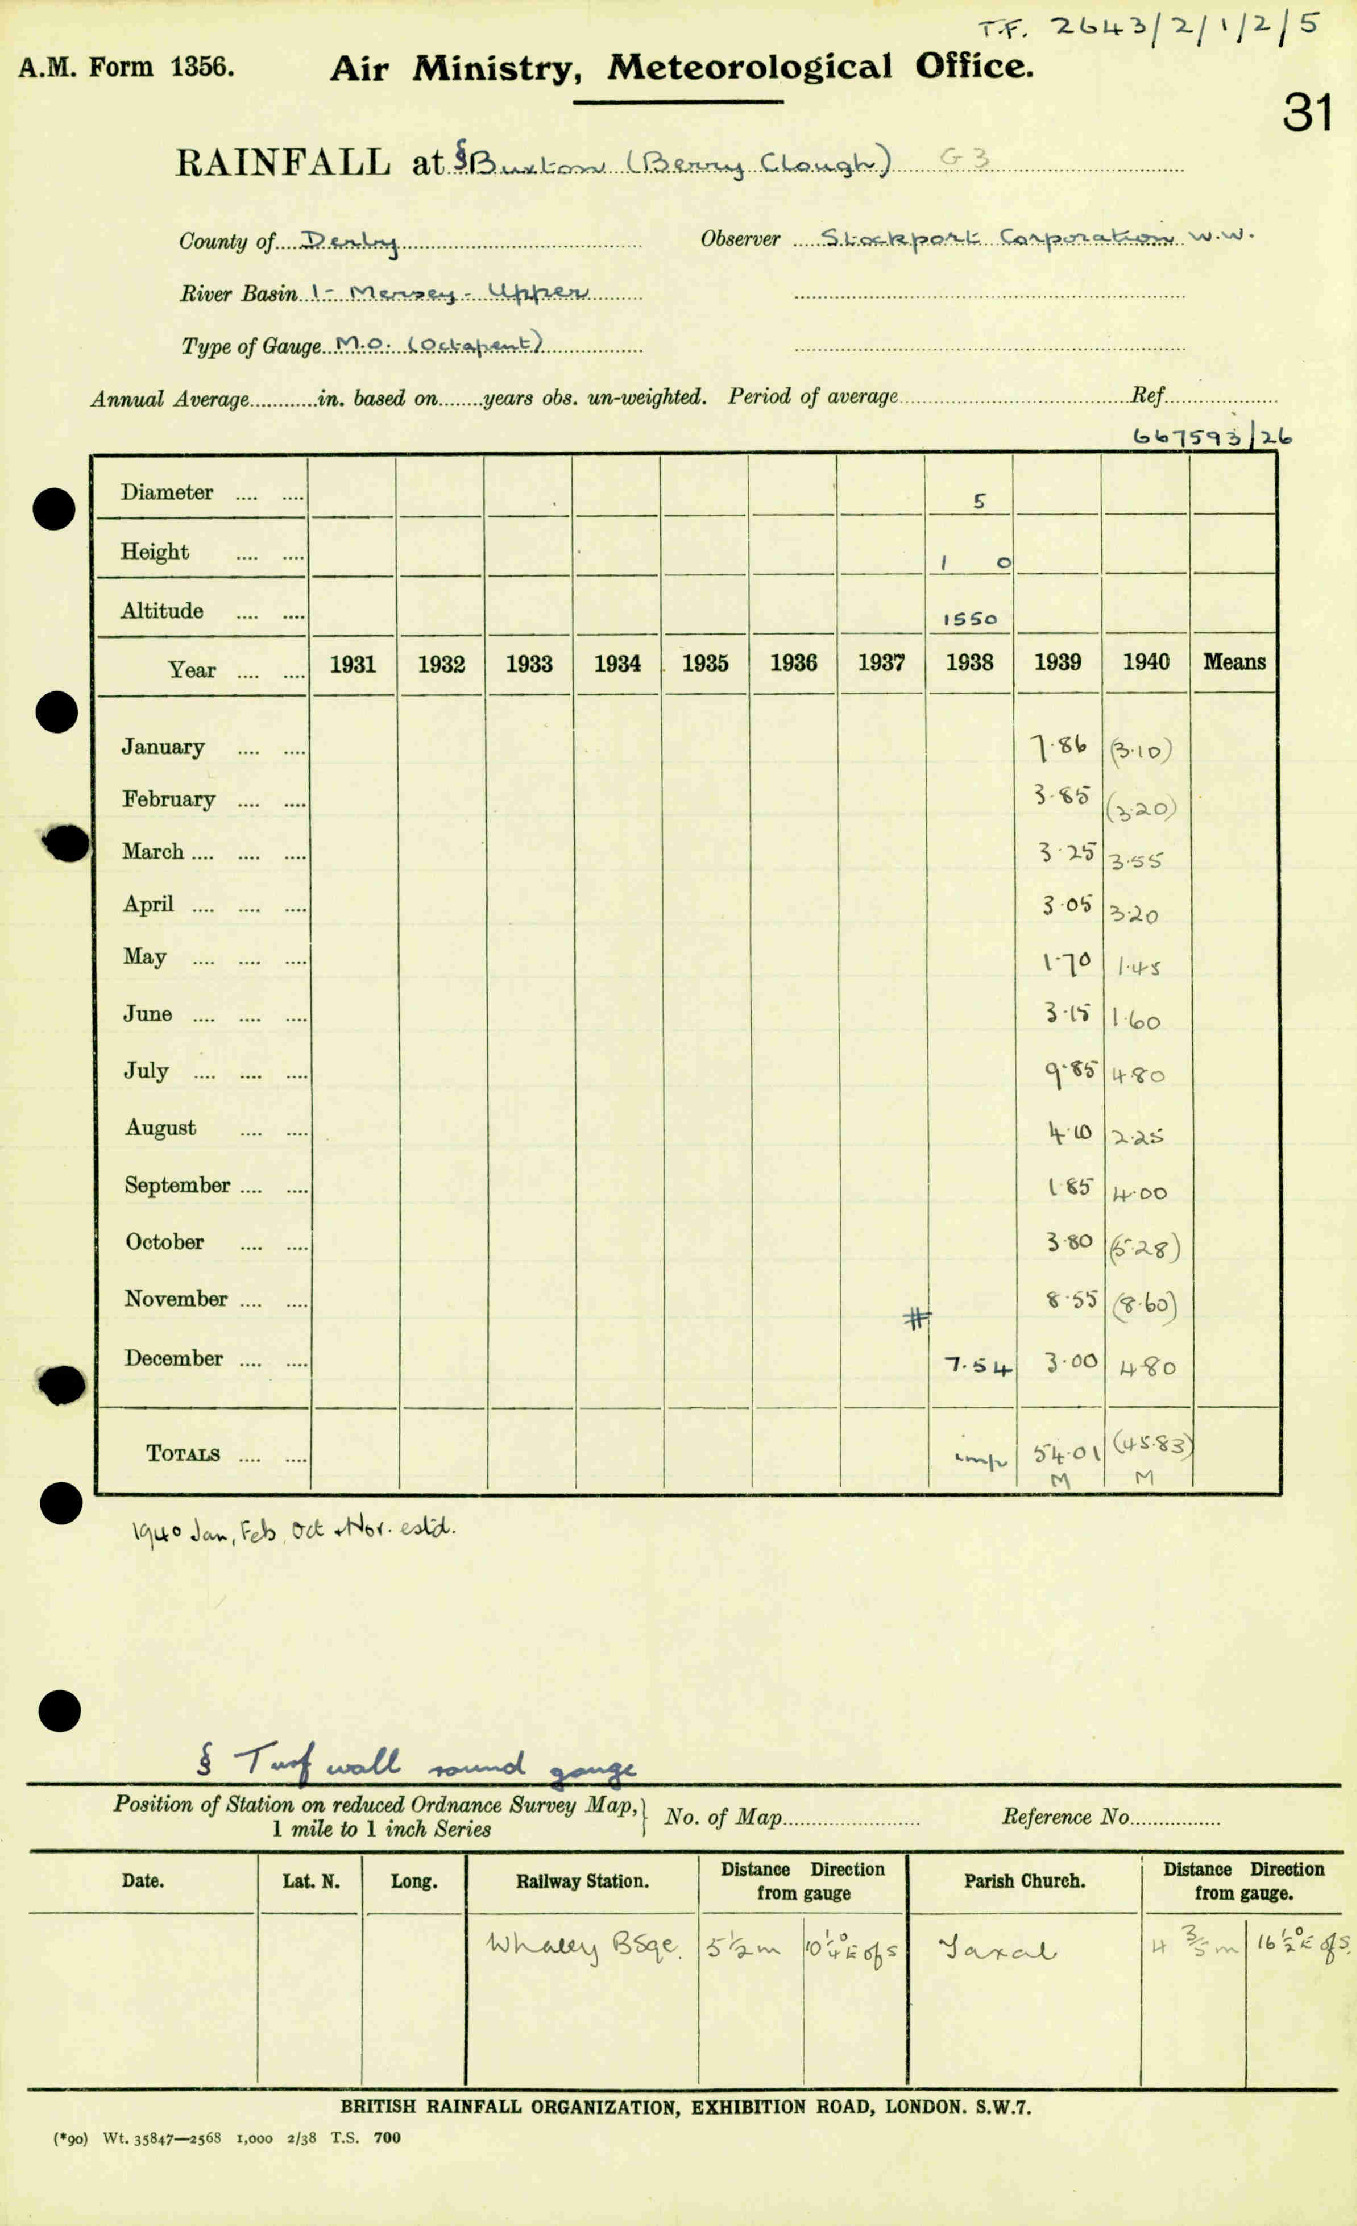 T.F. 2643/2/1/2/5
A.M. Form 1356. Air Ministry, Meteorological Office.
31
RAINFALL at § Buxton (Berry Clough) G3
County of Derby Observer Stockport Corporation W.W.
River Basin 1 - Mersey - Upper
Type of Gauge M.O. (Octapent)
Annual Average in. based on years obs. un-weighted. Period of average Ref.
667593/26
Diameter 5
Height 1 0
Altitude 1550
Year 1931 1932 1933 1934 1935 1936 1937 1938 1939 1940 Means
January 7.86 (3.10)
February 3.85 (3.20)
March 3.25 3.55
April 3.05 3.20
May 1.70 1.45
June 3.15 1.60
July 9.85 4.80
August 4.10 2.25
September 1.85 4.00
October 3.80 (5.28)
November 8.55 (8.60)
#
December 7.54 3.00 4.80
TOTALS imp 54.01 (45.83)
M M
1940 Jan, Feb, Oct + Nov. estd.
§ Turf wall round gauge
Position of Station on reduced Ordnance Survey Map, } No. of Map Reference No.
1 mile to 1 inch Series
Date. Lat. N. Long. Railway Station. Distance Direction from gauge Parish Church. Distance Direction from gauge.
Whaley Bdge. 5½ m 10¼° E of S Taxal 4 3/5 m 16½° E of S.
BRITISH RAINFALL ORGANIZATION, EXHIBITION ROAD, LONDON. S.W.7.
(*90) Wt. 35847—2568 1,000 2/38 T.S. 700